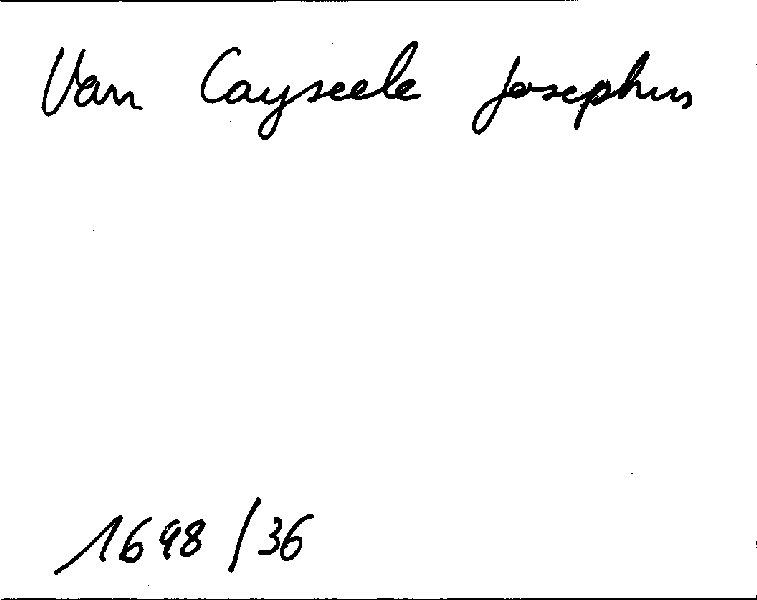 Van Cayseele Josephus
1698/36